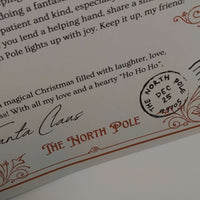 doing a fantas
patient and kind, especially
you lend a helping hand, share a smil
Pole lights up with joy. Keep it up, my friend!
magical Christmas filled with laughter, love,
ss! With all my love and a hearty "Ho Ho Ho".
anta Claus
THE NORTH POLE
THE NORTH POLE
DEC
25